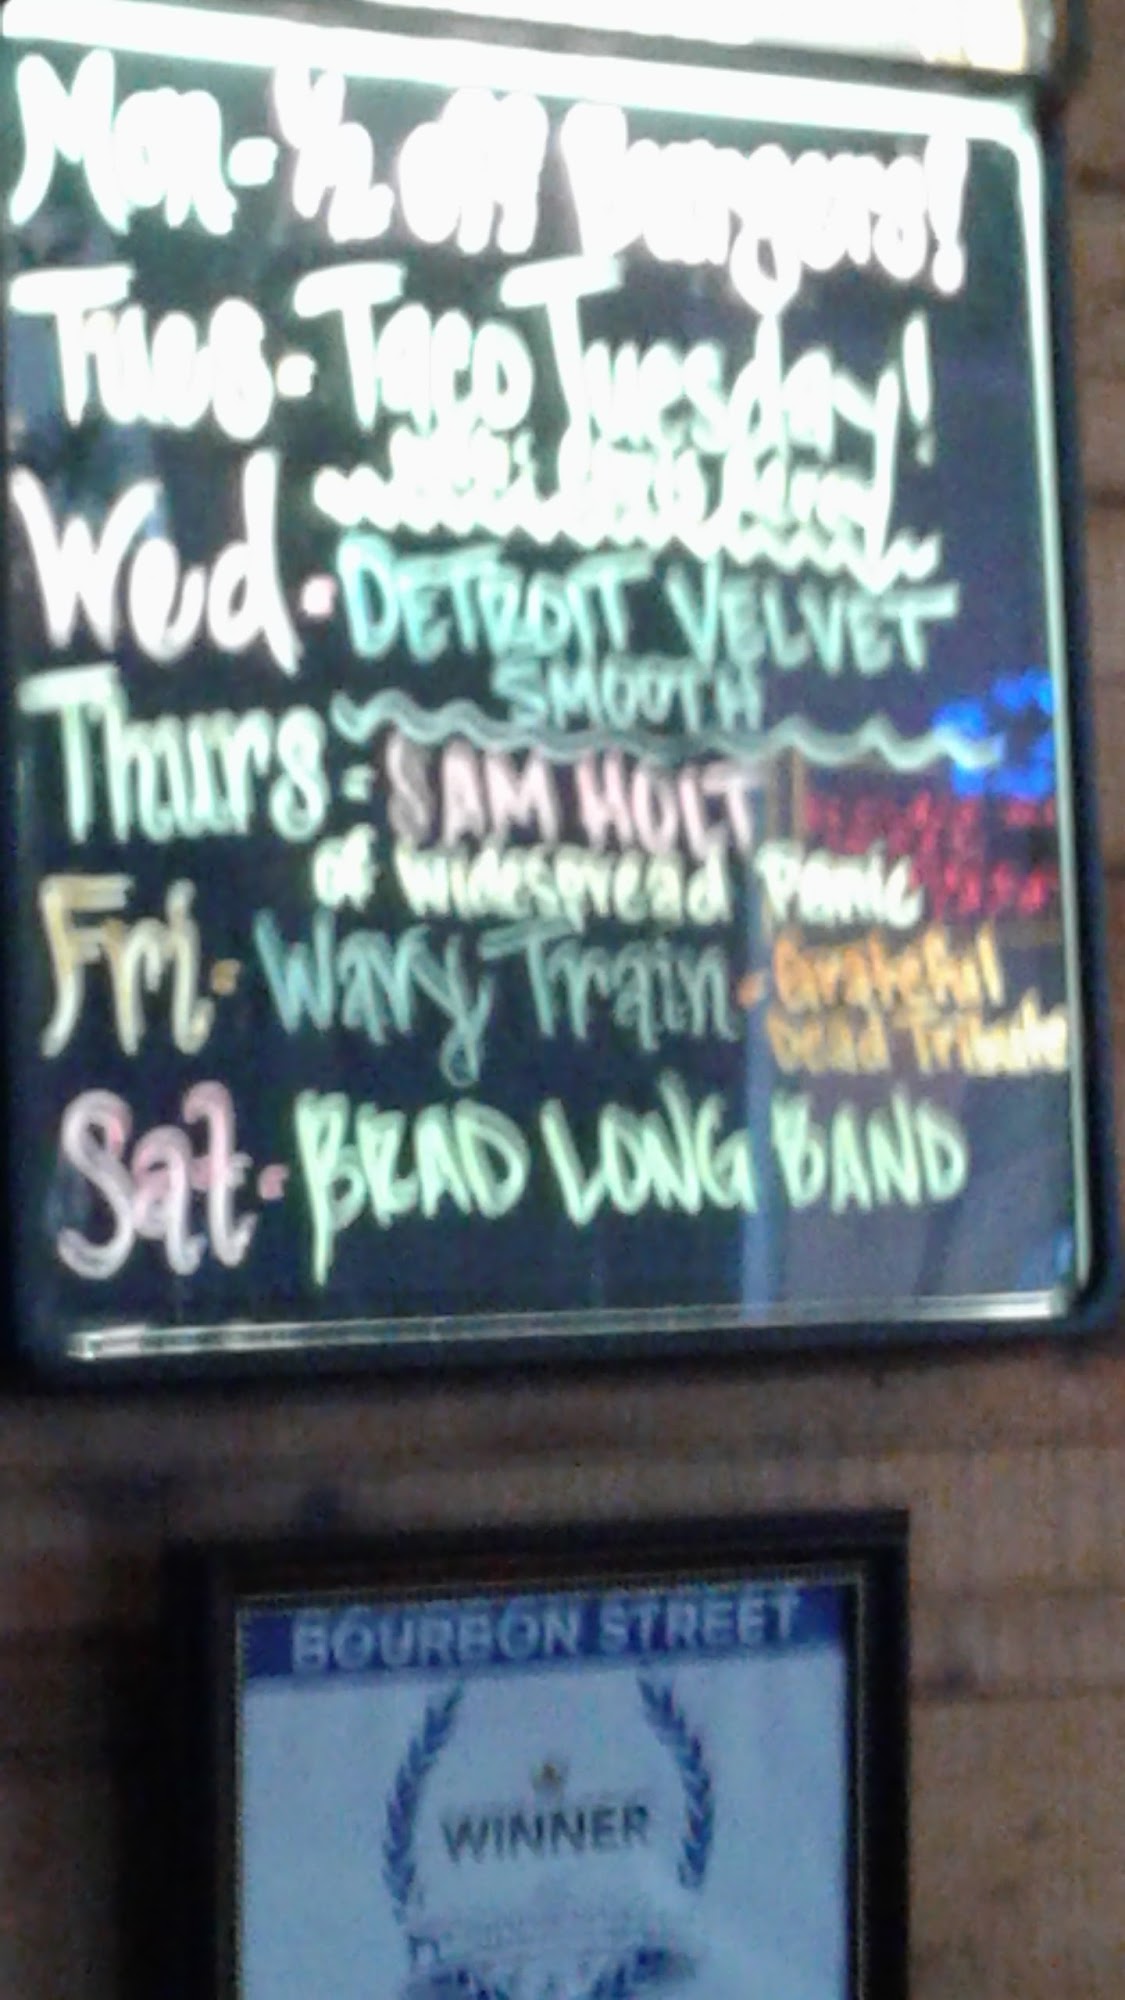 Mon - 1/2 off Burgers!
Tues - Taco Tuesday!
Wed - DETROIT VELVET
SMOOTH
Thurs - SAM HOLT
of Widespread Panic
Fri - Wavy Train - Grateful
Dead Tribute
Sat - BRAD LONG BAND
BOURBON STREET
WINNER